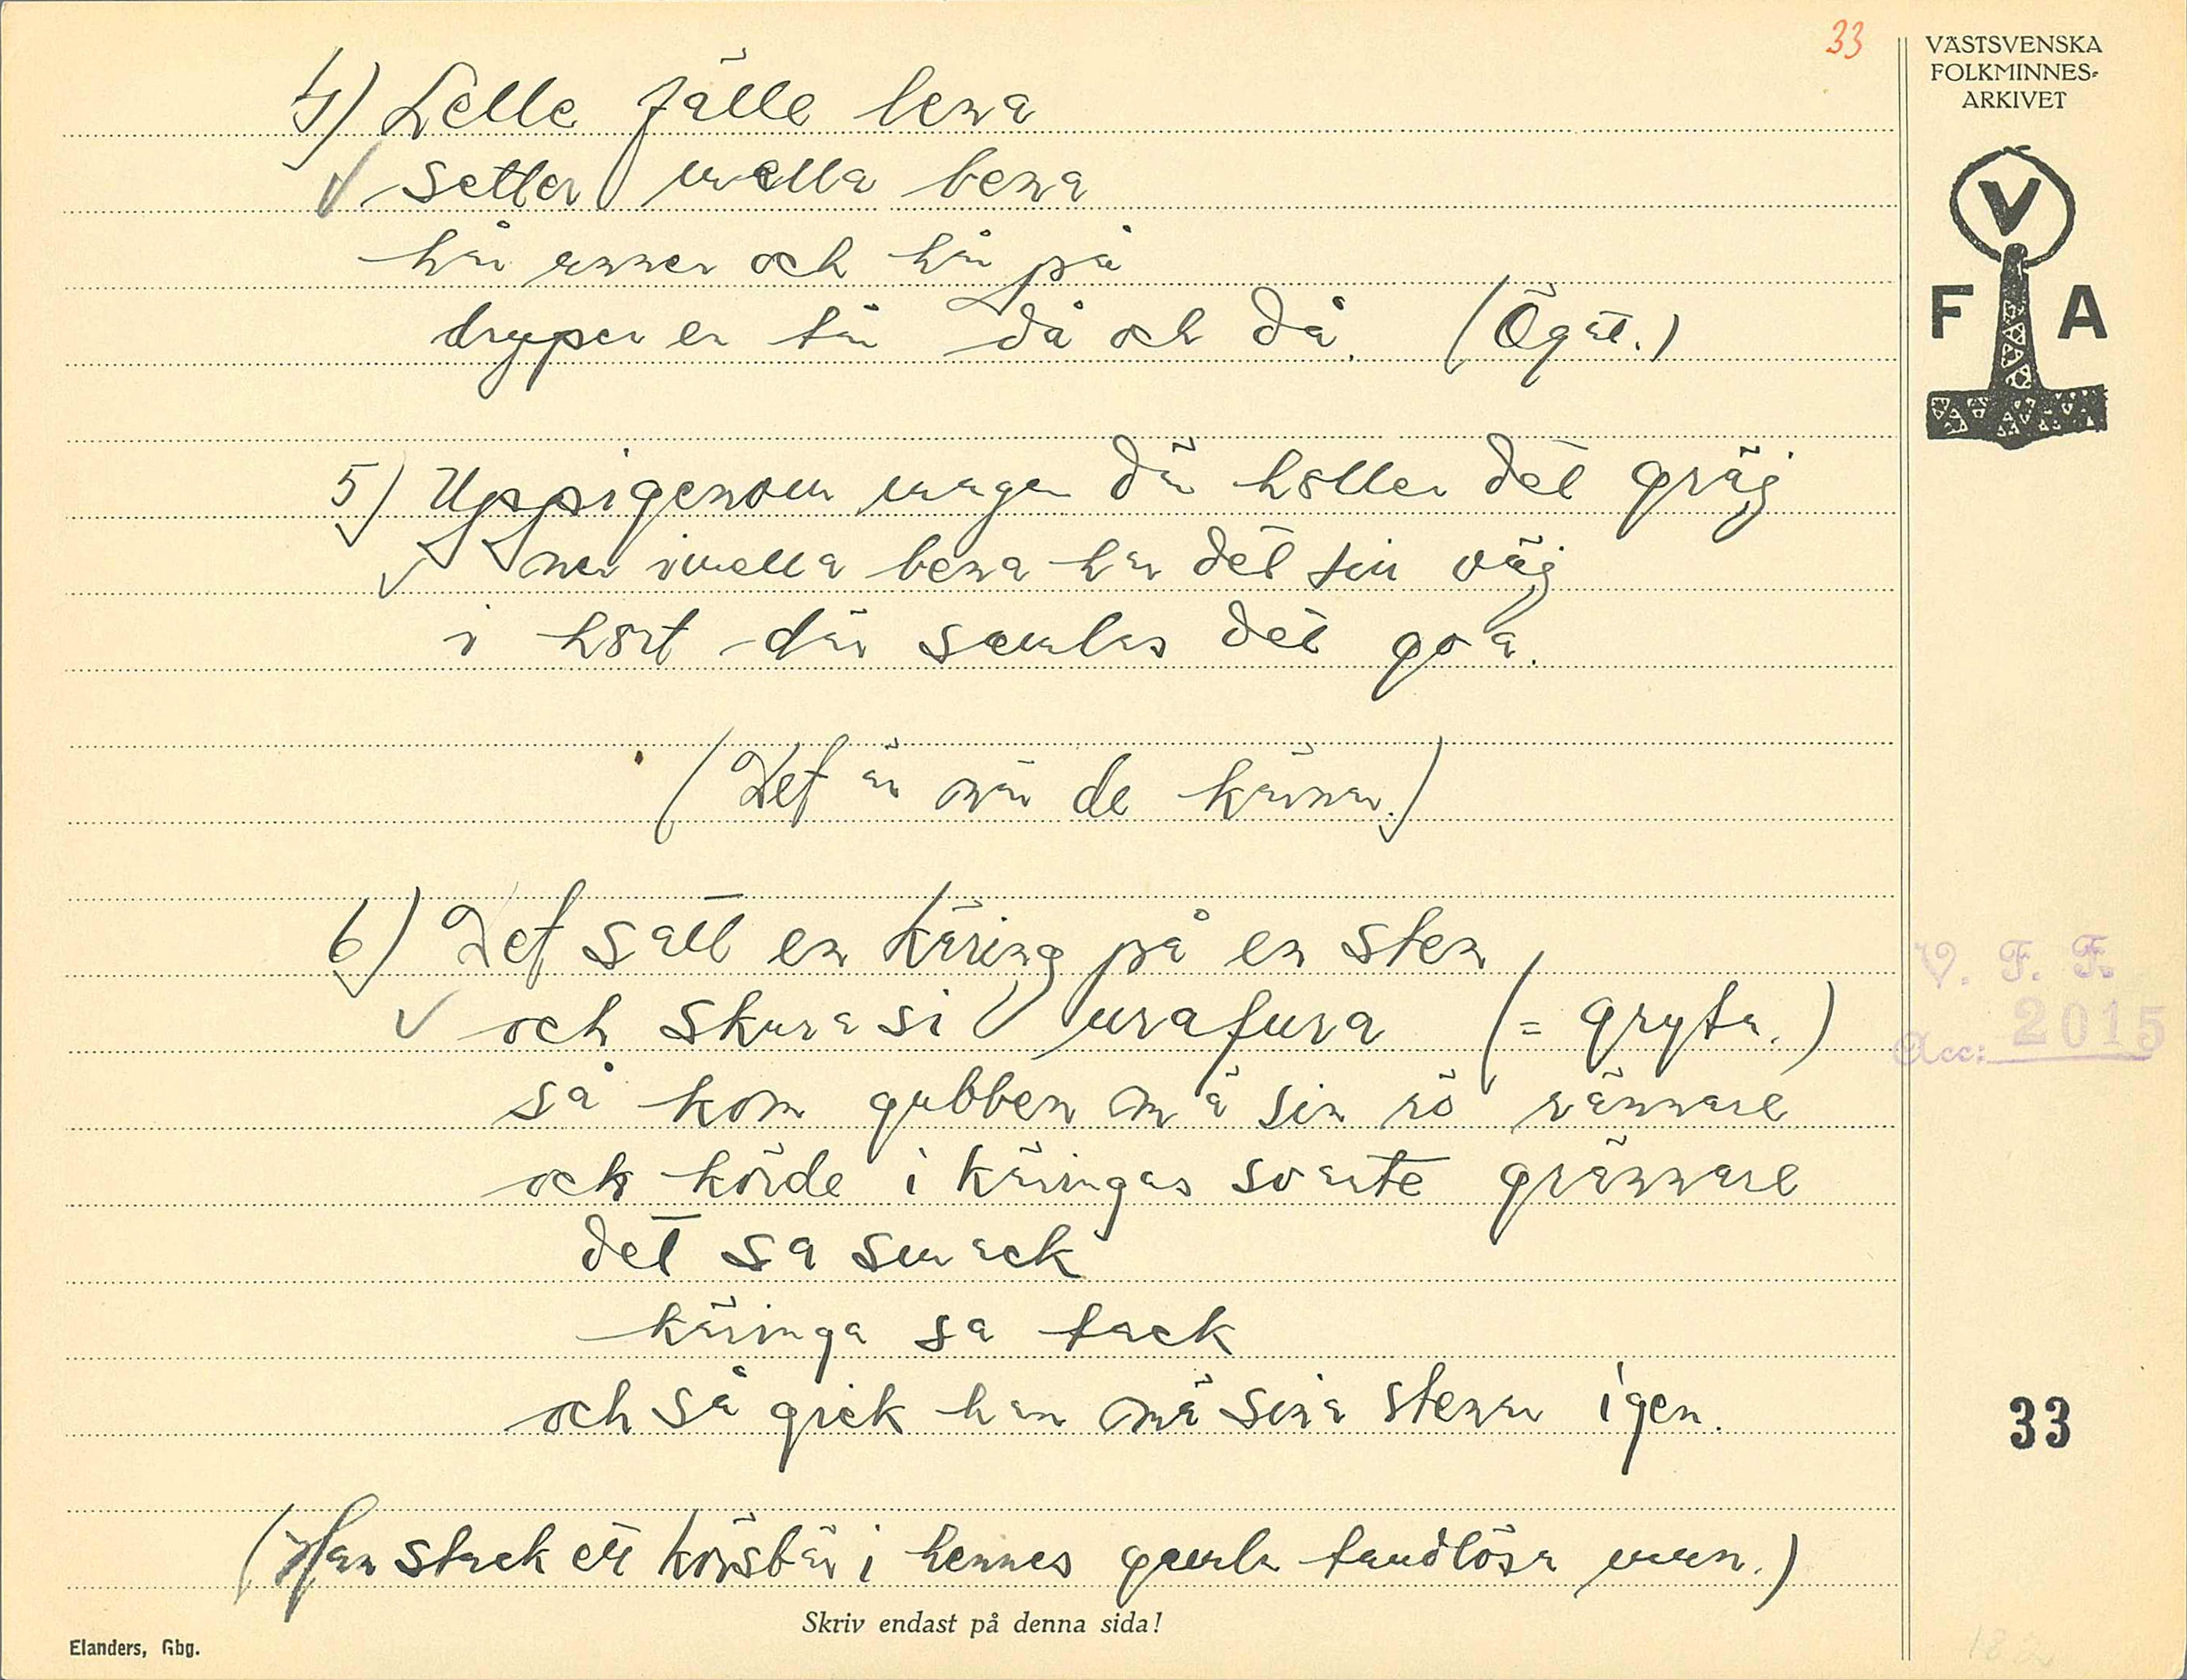 33
VÄSTSVENSKA
FOLKMINNES-
ARKIVET
V
F A
4) Lelle fälle lena
setter mella bena
hår unner och hår på
dryper en tår då och då. (Ögat.)
5) Uppigenom magen där håller det gräj
ner imella bena har det sin väj
i hört där samlas det goa.
(Det är när de kärnar.)
6) Det satt en käring på en sten
och skura si murafura (= gryta.)
så kom gubben mä sin rö rännare
och körde i käringas svarte grännare
det sa smack
käringa sa tack
och så gick han mä sina stenar igen.
(Han stack ett körsbär i hennes gamla tandlösa mun.)
V. F. F.
Acc: 2015
33
Skriv endast på denna sida!
Elanders, Gbg.
182